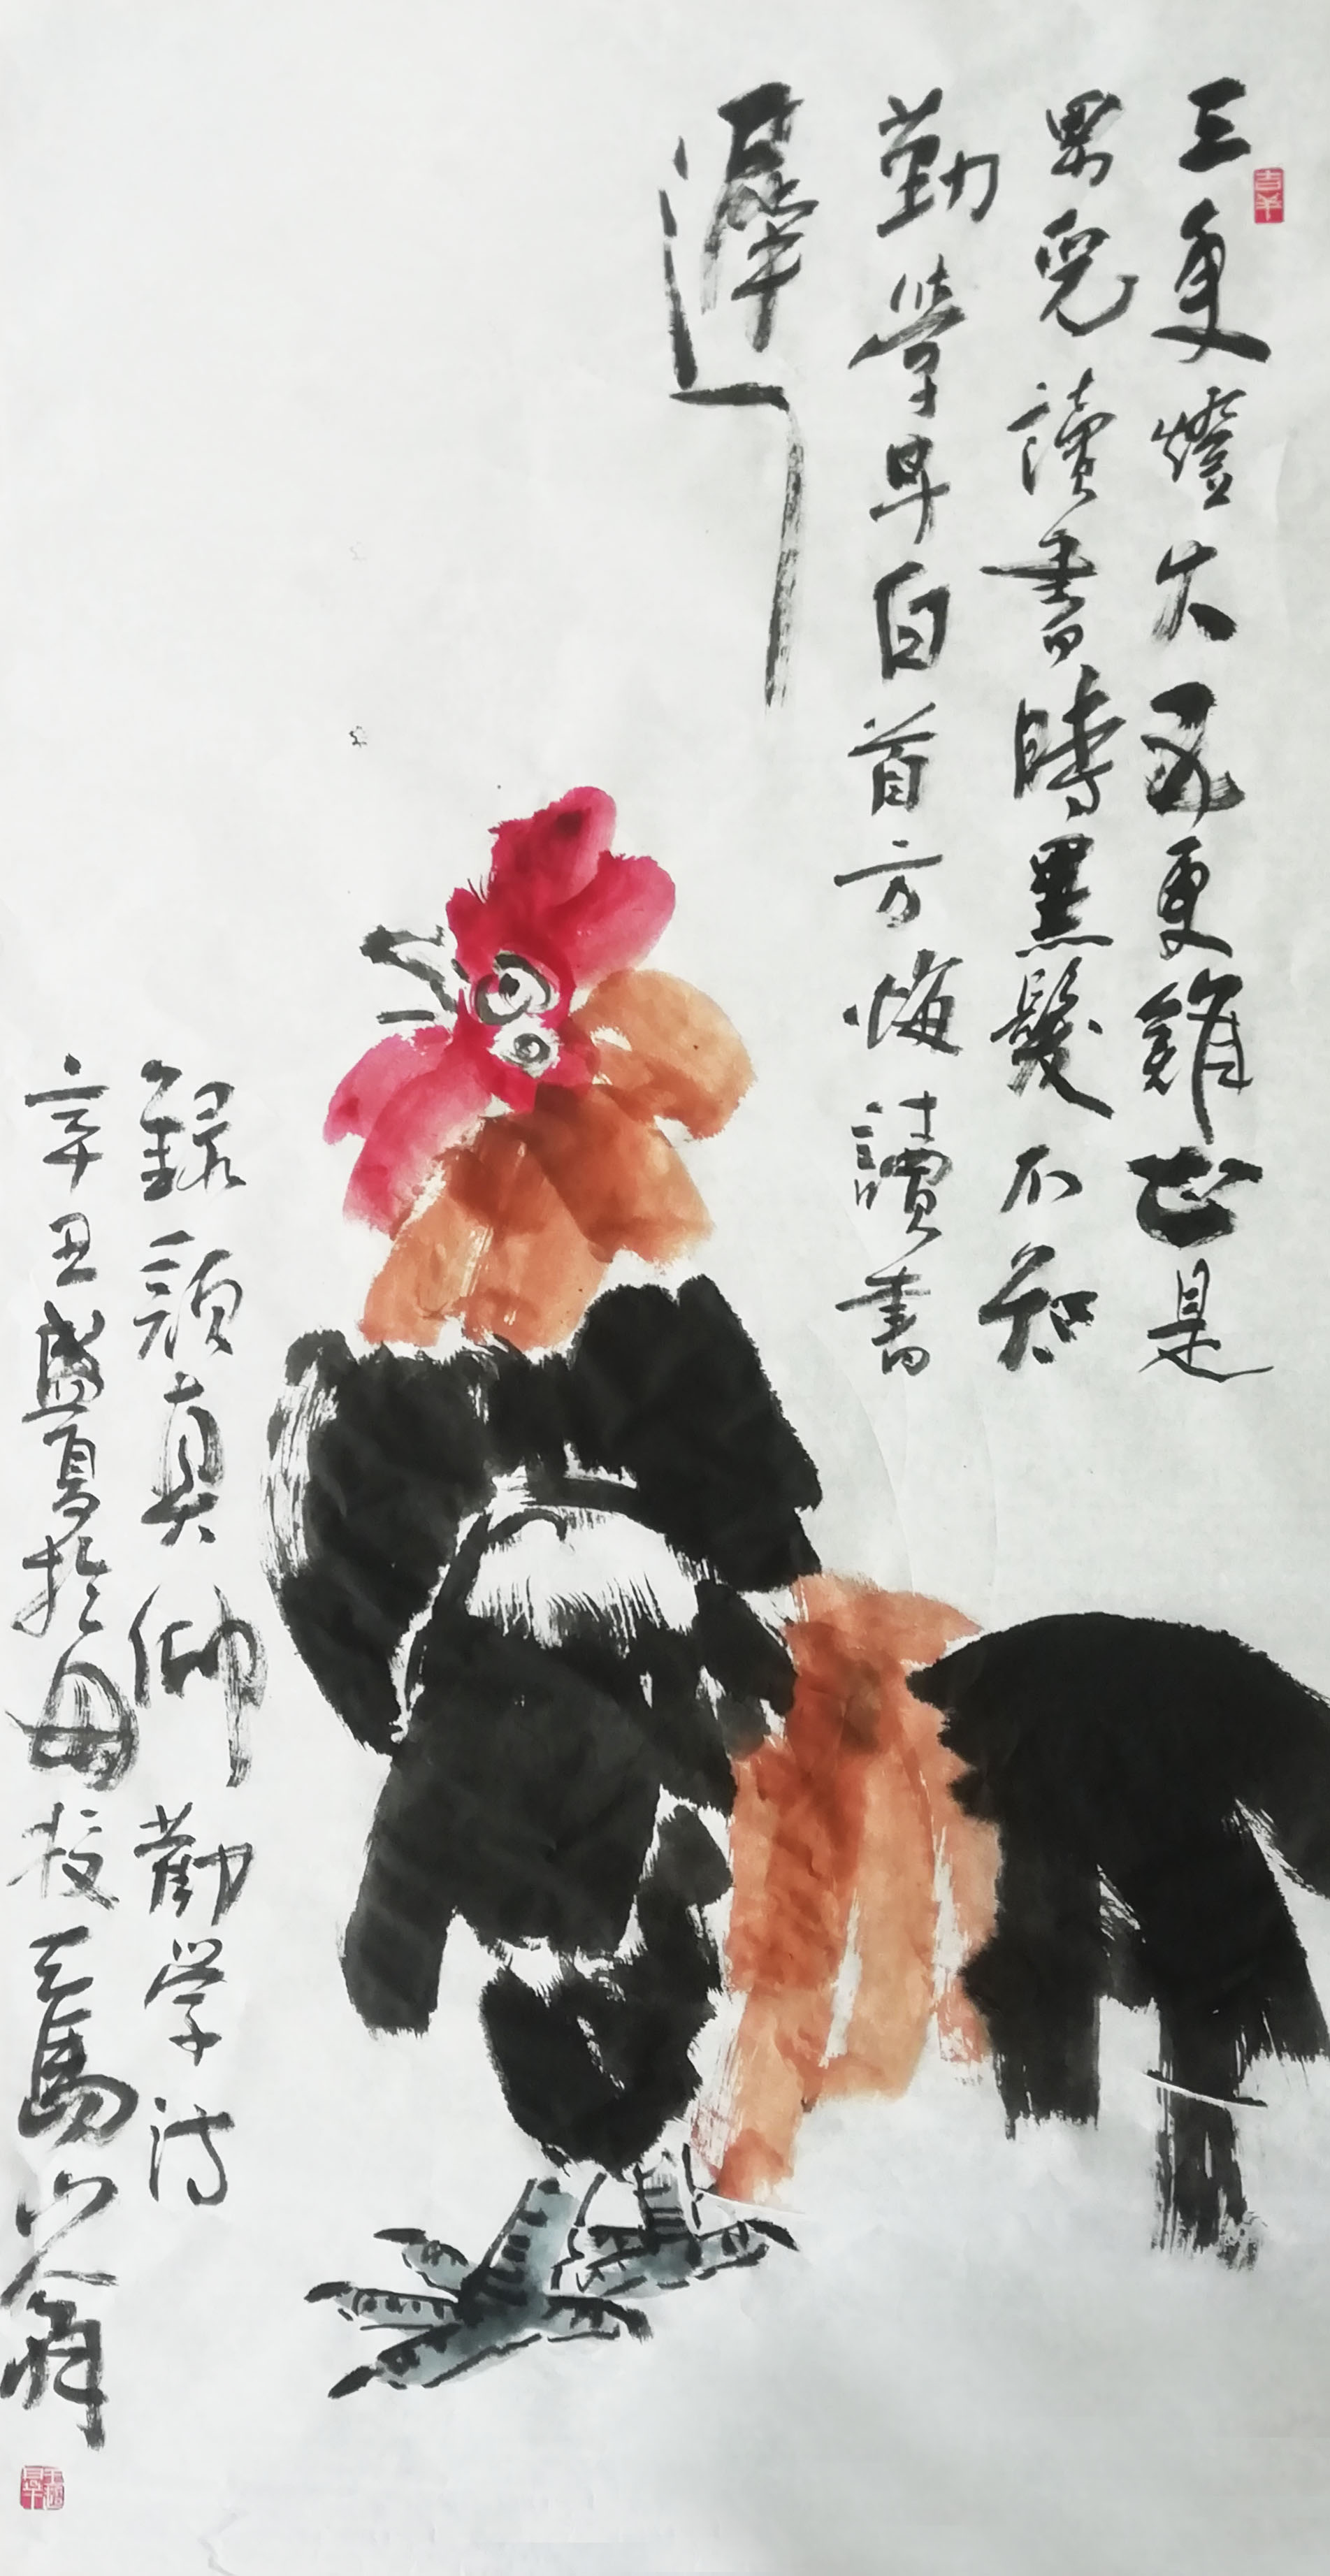 三更燈火五更雞正是
男兒讀書時黑髮不知
勤學早白首方悔讀書
遲
錄顏真卿勸學詩
辛丑盛夏於母校天馬山翁
吉羊